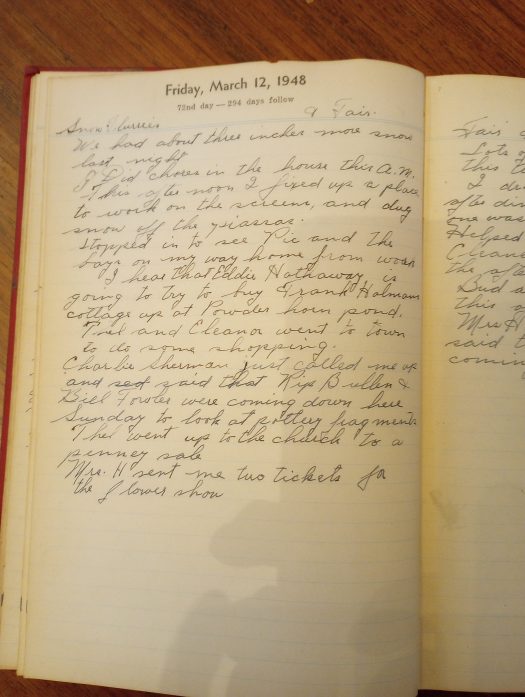 Friday, March 12, 1948
72nd day — 294 days follow
Snow flurries & Fair.
We had about three inches more snow
last night
I Did chores in the house this A.M.
This after noon I fixed up a place
to work on the screens, and dug
snow off the
Stopped in to see Pic and the
boys on my way home from work
I hear that Eddie Hathaway is
going to try to buy Frank Holmans
cottage up at Powder horn pond.
and Eleanor went to town
to do some shopping.
Charlie Sherman just called me up
and said that Rip Bullen &
Bill Fowler were coming down here
Sunday to look at pottery fragments
went up to the church to a
penney sale
Mrs. H sent me two tickets for
the flower show
Fair
Lots o
this
I
after din
one was
Helped
Cleane
the afte
Bud a
this
Mrs H
said t
coming